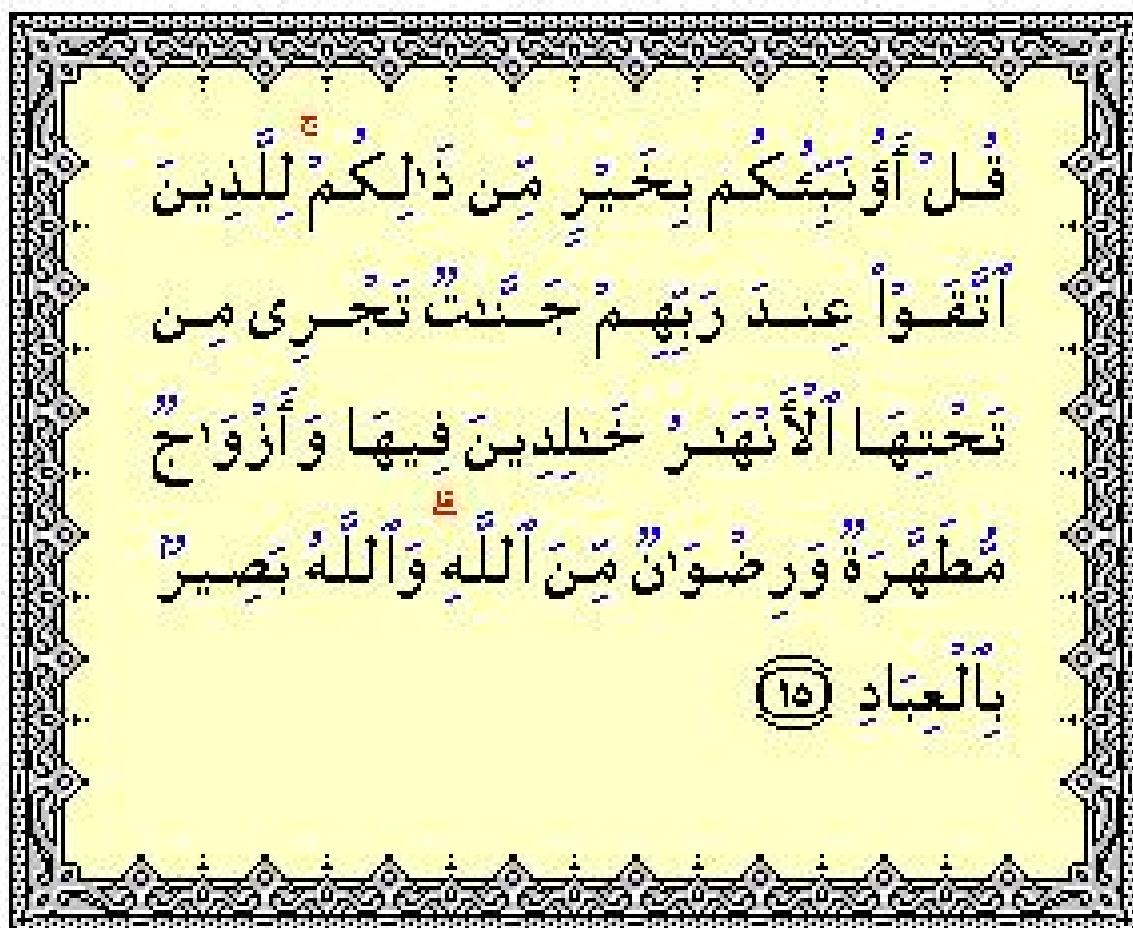 قُلْ أَؤُنَبِّئُكُم بِخَيْرٍ مِّن ذَٰلِكُمْ ۚ لِلَّذِينَ
ٱتَّقَوْا۟ عِندَ رَبِّهِمْ جَنَّـٰتٌ تَجْرِى مِن
تَحْتِهَا ٱلْأَنْهَـٰرُ خَـٰلِدِينَ فِيهَا وَأَزْوَٰجٌ
مُّطَهَّرَةٌ وَرِضْوَٰنٌ مِّنَ ٱللَّهِ ۗ وَٱللَّهُ بَصِيرٌۢ
بِٱلْعِبَادِ ١٥